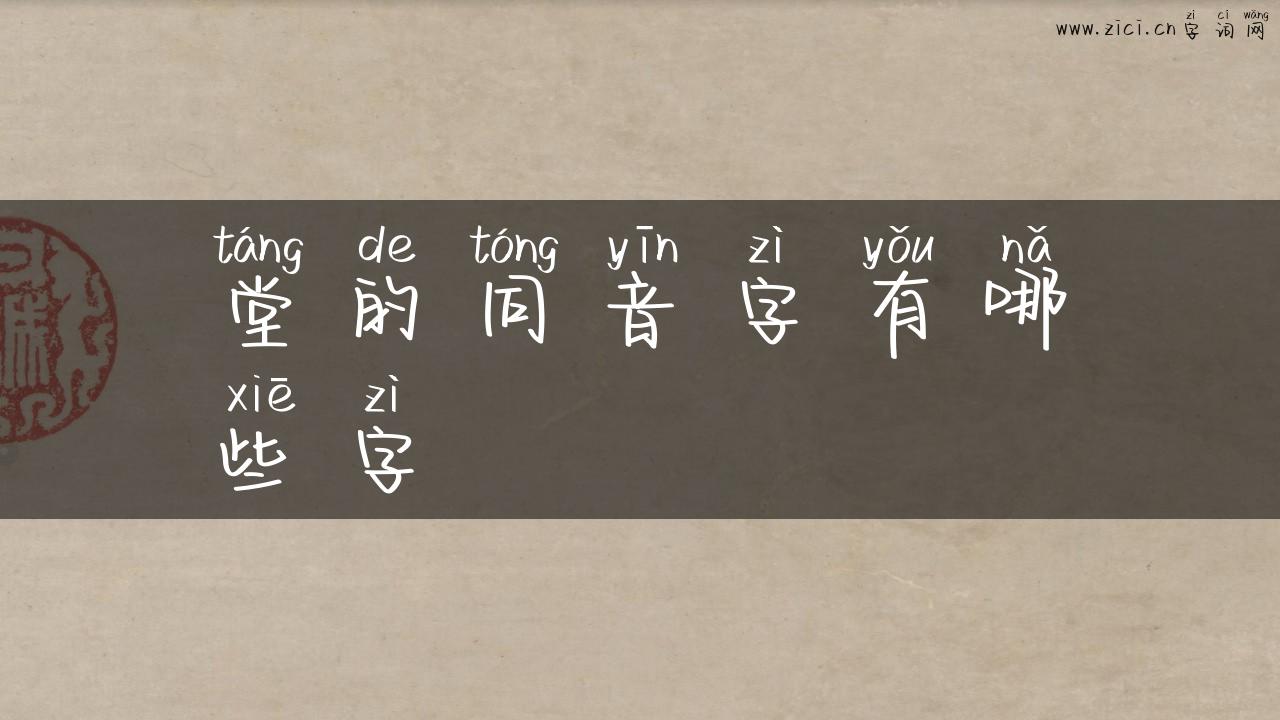 zì cí wǎng
www.zici.cn 字词网
táng de tóng yīn zì yǒu nǎ
堂的同音字有哪
xiē zì
些字